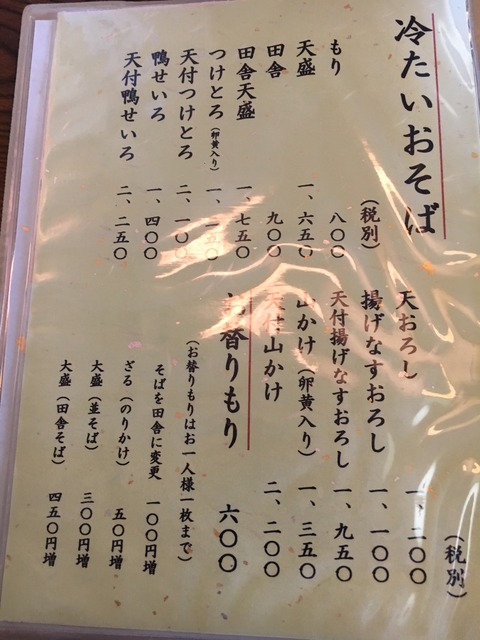 冷たいおそば
(税別)
もり 八〇〇
天盛 一、六五〇
田舎 九〇〇
田舎天盛 一、七五〇
つけとろ(卵黄入り) 一、二五〇
天付つけとろ 二、一〇〇
鴨せいろ 一、四〇〇
天付鴨せいろ 二、二五〇
(税別)
天おろし 一、二〇〇
揚げなすおろし 一、一〇〇
天付揚げなすおろし 一、九五〇
山かけ(卵黄入り) 一、三五〇
天付山かけ 二、二〇〇
お替りもり 六〇〇
(お替りもりはお一人様一枚まで)
そばを田舎に変更 一〇〇円増
ざる(のりかけ) 五〇円増
大盛(並そば) 三〇〇円増
大盛(田舎そば) 四五〇円増